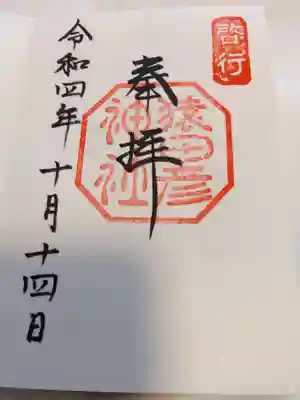 啓行
奉拝
猿田彦
神社
令和四年 十月十四日